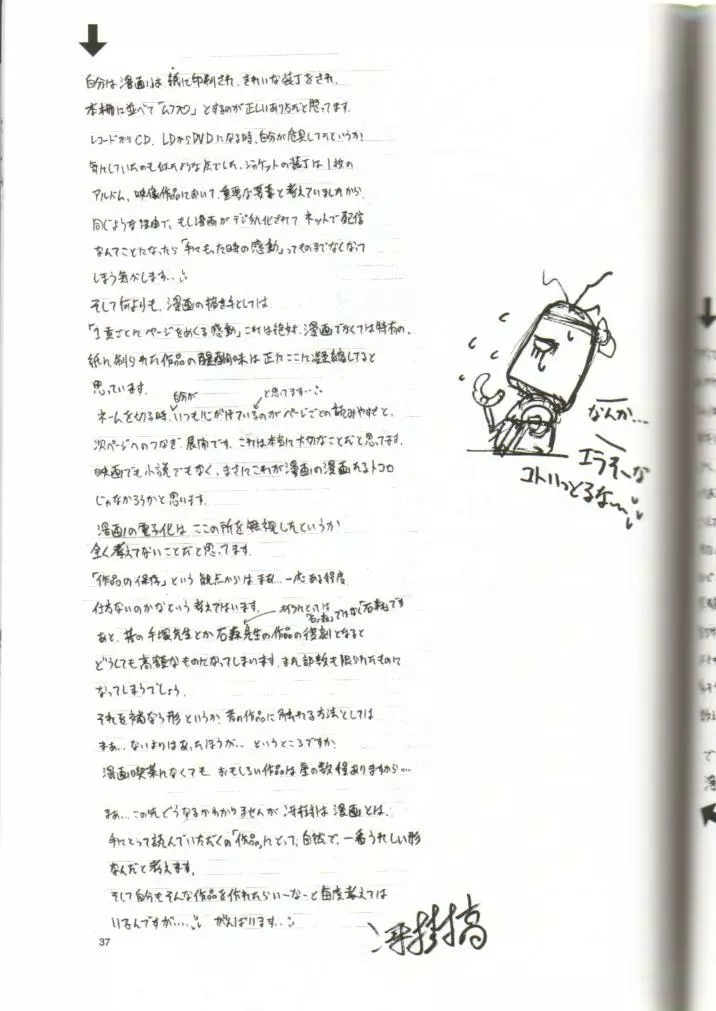 自分は漫画は紙に印刷され、きれいな装丁をされ、
本棚に並べて「ムフフ」とするのが正しいあり方だと思ってます。
レコードからCD、LDからDVDになる時、自分が危具してたというか?
気にしていたのも似たような点でした。ジャケットの装丁は1枚の
アルバム、映像作品において、重要な要素と考えていましたから、
同じような理由で、もし漫画がデジタル化されて ネットで配信
なんてことになったら「手にもった時の感動」ってものまでなくなって
しまう気がします…
そして何よりも、漫画の描き手としては
「1頁ごとにページをめくる感動」これは絶対、漫画でなくては特有の、
紙に刷られた作品の醍醐味は正にここに凝縮してると
思っています。
自分が
と思ってます…
ネームを切る時、いつも心がけているのがページごとの読みやすさと、
次ページへのつなぎ・展開です。これは本当に大切なことだと思ってます。
映画でも小説でもなく、まさにこれが漫画の漫画たるトコロ
じゃなかろうかと思います。
漫画の電子化は、ここの所を無視したというか
全く考えてないことだと思ってます。
「作品の保存」という観点からは まぁ…一応ある程度
仕方ないのかなという考えではいます。
オイラにとっては
「石ノ森」ではなく「石森」です
あと、昔の手塚先生とか石森先生の作品の復刻となると
どうしても高額なものになってしまいます。また部数も限られたものに
なってしまうでしょう。
それを補なう形というか?昔の作品に触れる方法としては
まぁ…ないよりはあったほうが… というところですか?
漫画喫茶になくても、おもしろい作品は星の数程ありますから…
まぁ…この先どうなるかわかりませんが 冴樹は漫画とは、
手にとって読んでいただくの「作品」にとって、自然で、一番うれしい形
なんだと考えます。
そして自分もそんな作品を作れたらいーなーと毎度考えては
いるんですが… がんばります…
冴樹高
なんか…
エラそーな
コトいっとるな〜
37